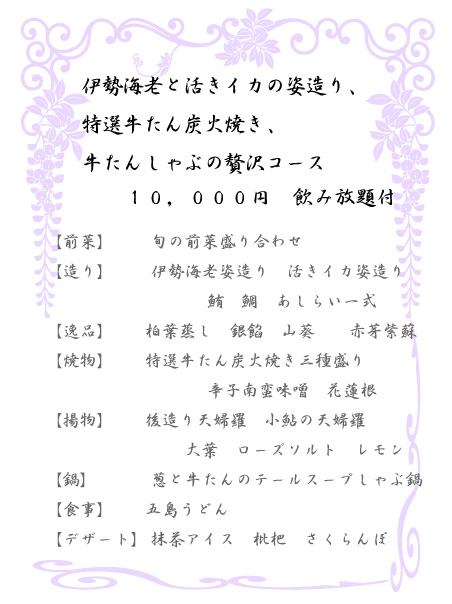 伊勢海老と活きイカの姿造り、
特選牛たん炭火焼き、
牛たんしゃぶの贅沢コース
１０，０００円　飲み放題付
【前菜】　旬の前菜盛り合わせ
【造り】　伊勢海老姿造り　活きイカ姿造り
鮪　鯛　あしらい一式
【逸品】　柏葉蒸し　銀餡　山葵　赤芽紫蘇
【焼物】　特選牛たん炭火焼き三種盛り
辛子南蛮味噌　花蓮根
【揚物】　後造り天婦羅　小鮎の天婦羅
大葉　ローズソルト　レモン
【鍋】　葱と牛たんのテールスープしゃぶ鍋
【食事】　五島うどん
【デザート】　抹茶アイス　枇杷　さくらんぼ